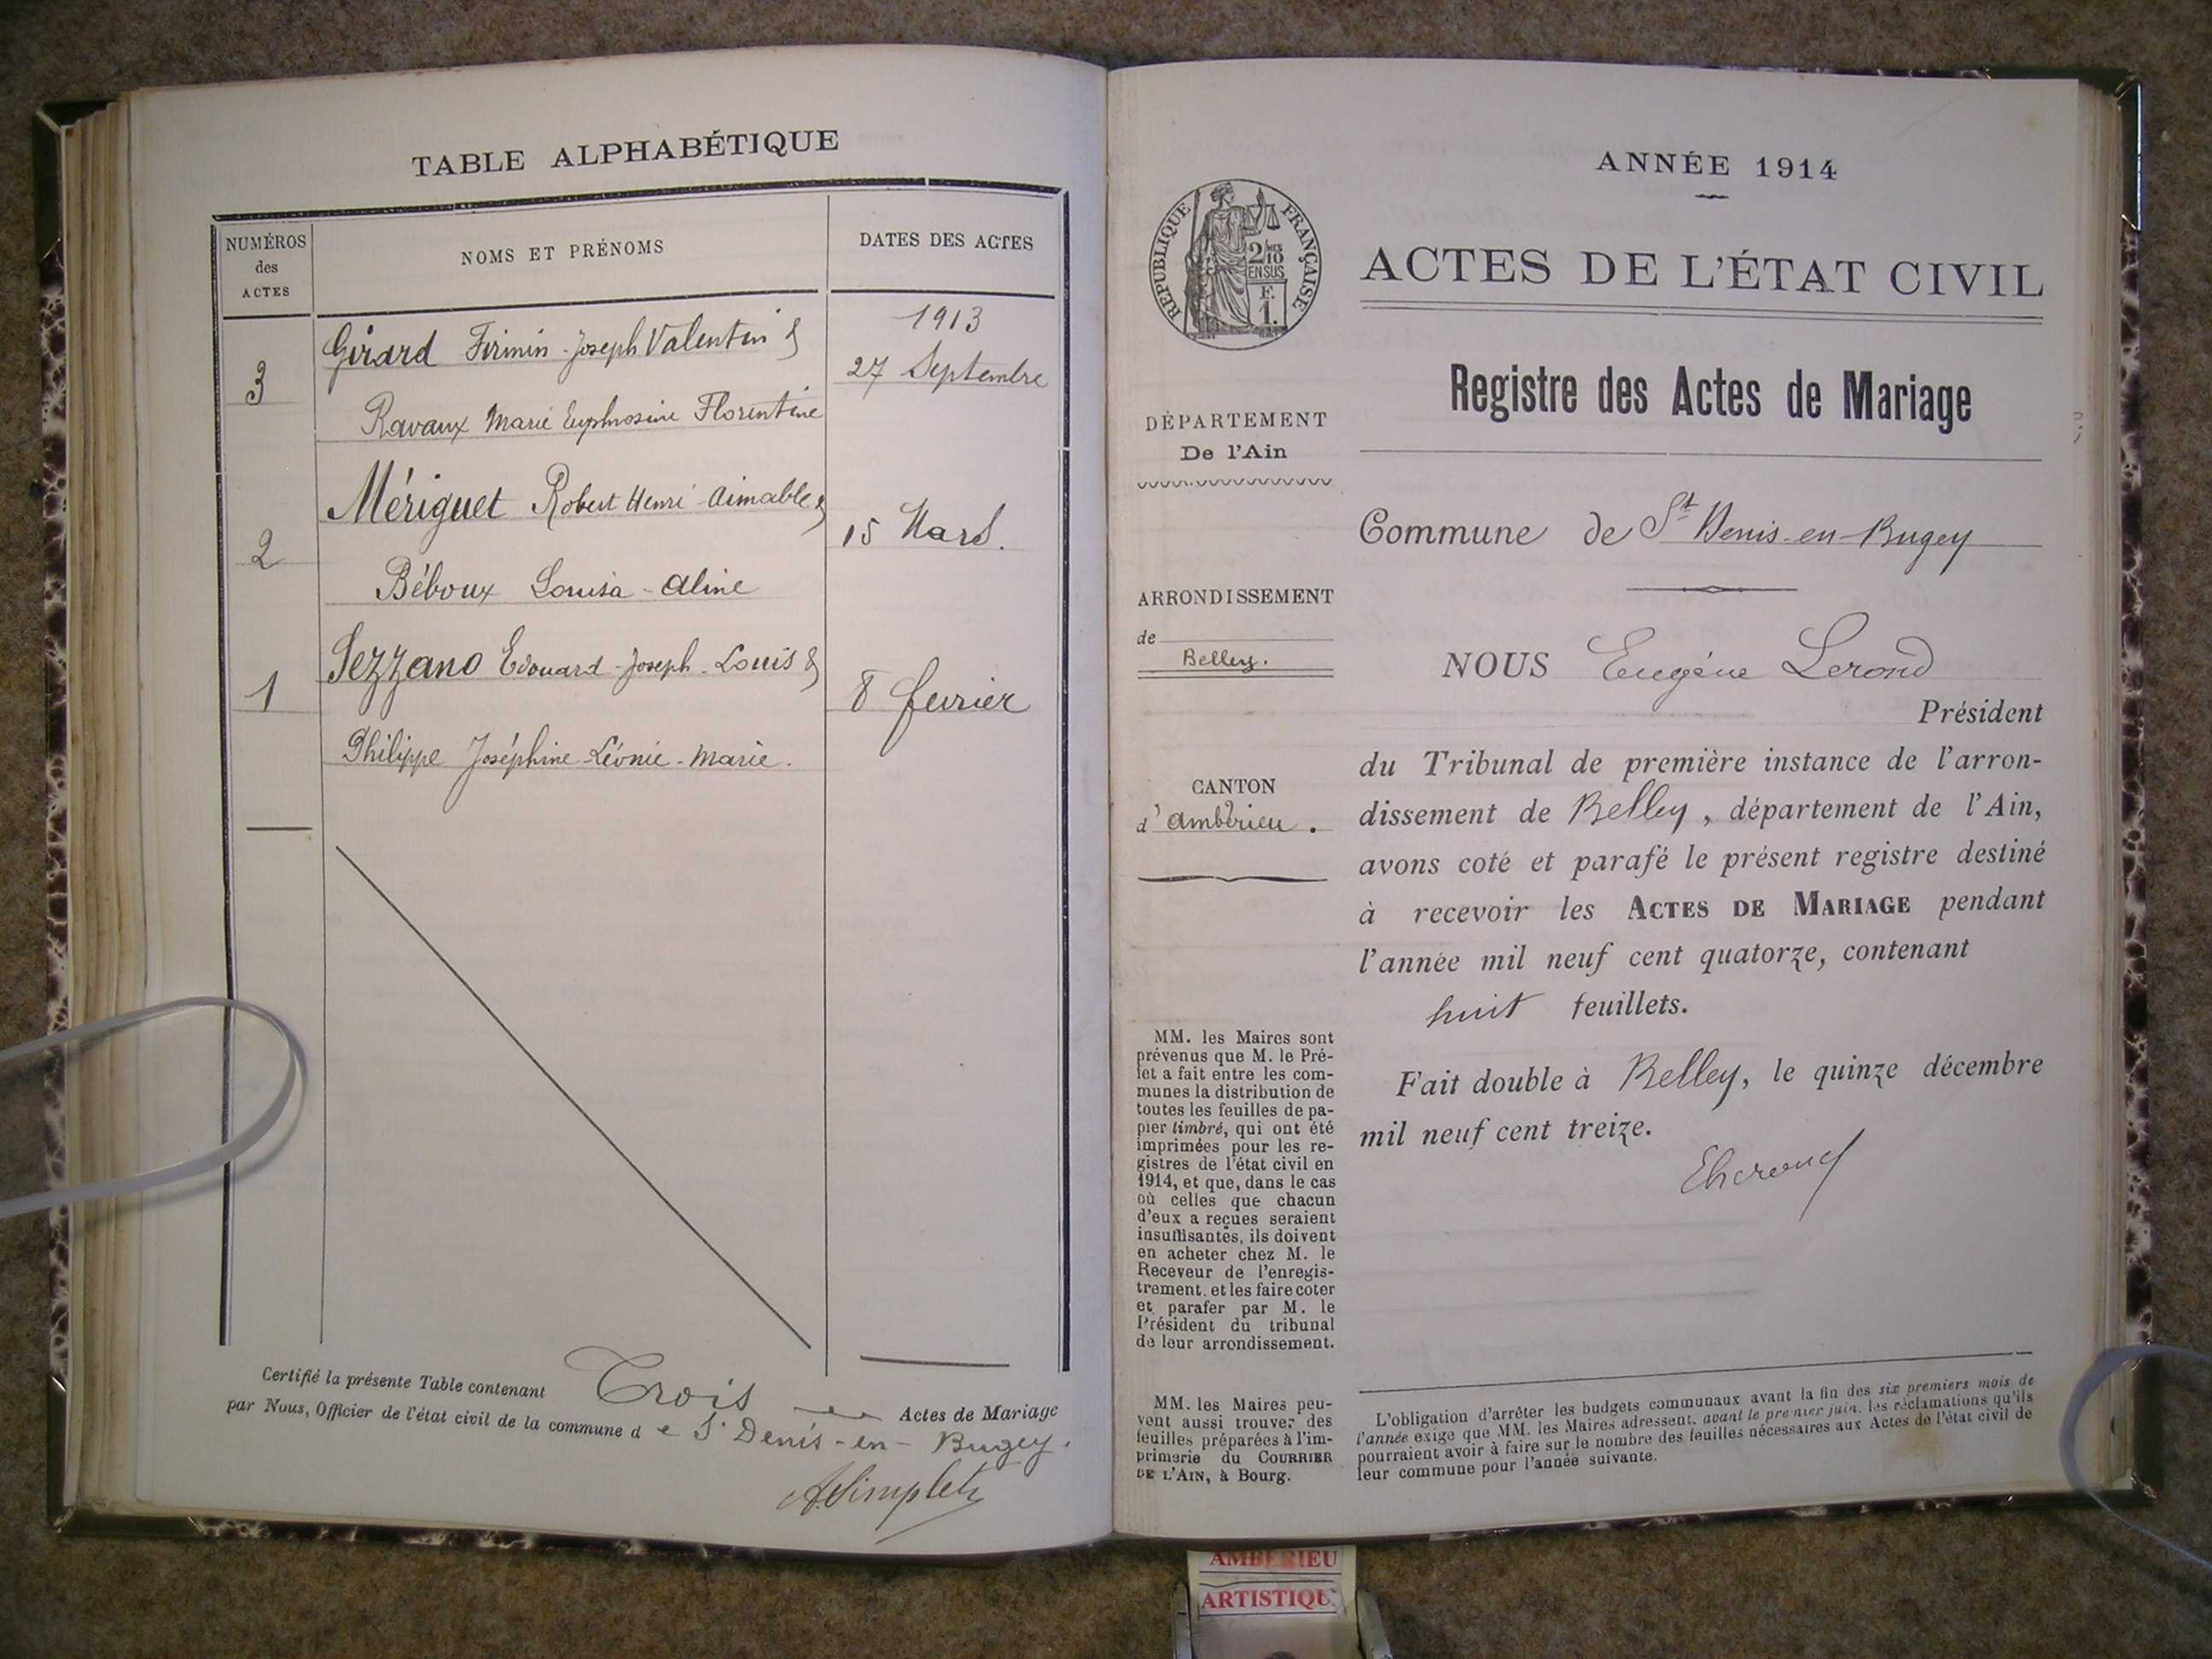 TABLE ALPHABÉTIQUE
NUMÉROS
des
ACTES
NOMS ET PRÉNOMS
DATES DES ACTES
1913
3
Girard Firmin-Joseph Valentin &
27 Septembre
Ravaux Marie Euphrosine Florentine
2
Mériguet Robert Henri-Aimable &
15 Mars.
Béboux Louisa-Aline
1
Sezzano Edouard-Joseph-Louis &
8 février
Philippe Joséphine-Léonie-Marie.
Certifié la présente Table contenant Trois Actes de Mariage
par Nous, Officier de l'état civil de la commune d e St Denis-en-Bugey.
ANNÉE 1914
RÉPUBLIQUE FRANÇAISE
2/10
EN SUS
F.
1.
ACTES DE L'ÉTAT CIVIL
Registre des Actes de Mariage
DÉPARTEMENT
De l'Ain
Commune de St Denis-en-Bugey
ARRONDISSEMENT
de
Belley.
NOUS Eugène Lerond
Président
CANTON
d'Ambérieu.
du Tribunal de première instance de l'arron-
dissement de Belley, département de l'Ain,
avons coté et parafé le présent registre destiné
à recevoir les ACTES DE MARIAGE pendant
l'année mil neuf cent quatorze, contenant
huit feuillets.
Fait double à Belley, le quinze décembre
mil neuf cent treize.
MM. les Maires sont
prévenus que M. le Pré-
fet a fait entre les com-
munes la distribution de
toutes les feuilles de pa-
pier timbré, qui ont été
imprimées pour les re-
gistres de l'état civil en
1914, et que, dans le cas
où celles que chacun
d'eux a reçues seraient
insuffisantes, ils doivent
en acheter chez M. le
Receveur de l'enregis-
trement, et les faire coter
et parafer par M. le
Président du tribunal
de leur arrondissement.
MM. les Maires peu-
vent aussi trouver des
feuilles préparées à l'im-
primerie du COURRIER
DE L'AIN, à Bourg.
L'obligation d'arrêter les budgets communaux avant la fin des six premiers mois de
l'année exige que MM. les Maires adressent, avant le premier juin, les réclamations qu'ils
pourraient avoir à faire sur le nombre des feuilles nécessaires aux Actes de l'état civil de
leur commune pour l'année suivante.
AMBERIEU
ARTISTIQU